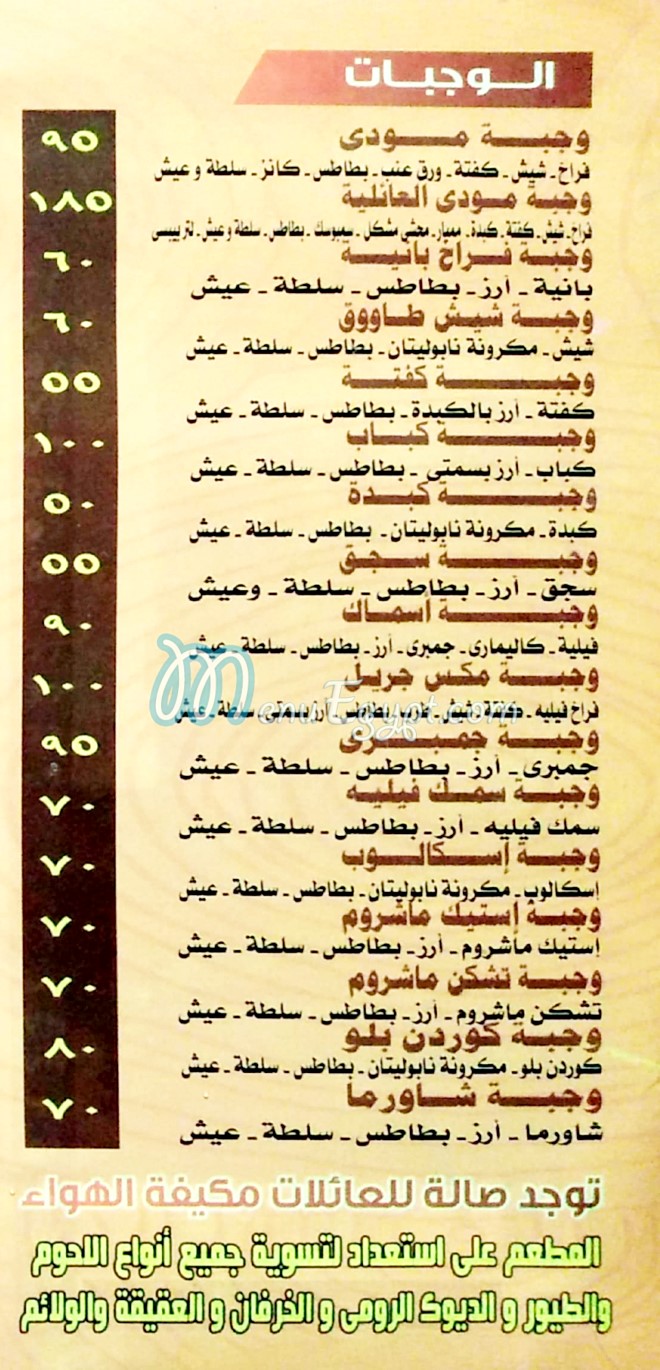 الوجبات
وجبة مودى ٩٥
فراخ - شيش - كفتة - ورق عنب - بطاطس - كانز - سلطة وعيش
وجبة مودى العائلية ١٨٥
فراخ - شيش - كفتة - كبدة - ممبار - محشي مشكل - سمبوسك - بطاطس - سلطة وعيش - لتر بيبسى
وجبة فراخ بانية ٦٠
بانية - أرز - بطاطس - سلطة - عيش
وجبة شيش طاووق ٦٠
شيش - مكرونة نابوليتان - بطاطس - سلطة - عيش
وجبة كفتة ٥٥
كفتة - أرز بالكبدة - بطاطس - سلطة - عيش
وجبة كباب ١٠٠
كباب - أرز بسمتى - بطاطس - سلطة - عيش
وجبة كبدة ٥٠
كبدة - مكرونة نابوليتان - بطاطس - سلطة - عيش
وجبة سجق ٥٥
سجق - أرز - بطاطس - سلطة - وعيش
وجبة أسماك ٩٠
فيلية - كاليمارى - جمبرى - أرز - بطاطس - سلطة - عيش
وجبة مكس جريل ١٠٠
فراخ فيليه - كفتة - شيش - بطاطس - أرز بسمتى سلطة - عيش
وجبة جمبرى ٩٥
جمبرى - أرز - بطاطس - سلطة - عيش
وجبة سمك فيليه ٧٠
سمك فيليه - أرز - بطاطس - سلطة - عيش
وجبة إسكالوب ٧٠
إسكالوب - مكرونة نابوليتان - بطاطس - سلطة - عيش
وجبة إستيك ماشروم ٧٠
إستيك ماشروم - أرز - بطاطس - سلطة - عيش
وجبة تشكن ماشروم ٧٠
تشكن ماشروم - أرز - بطاطس - سلطة - عيش
وجبة كوردن بلو ٨٠
كوردن بلو - مكرونة نابوليتان - بطاطس - سلطة - عيش
وجبة شاورما ٧٠
شاورما - أرز - بطاطس - سلطة - عيش
توجد صالة للعائلات مكيفة الهواء
المطعم على استعداد لتسوية جميع أنواع اللحوم
والطيور و الديوك الرومى و الخرفان و العقيقة والولائم
MenuEgypt.com